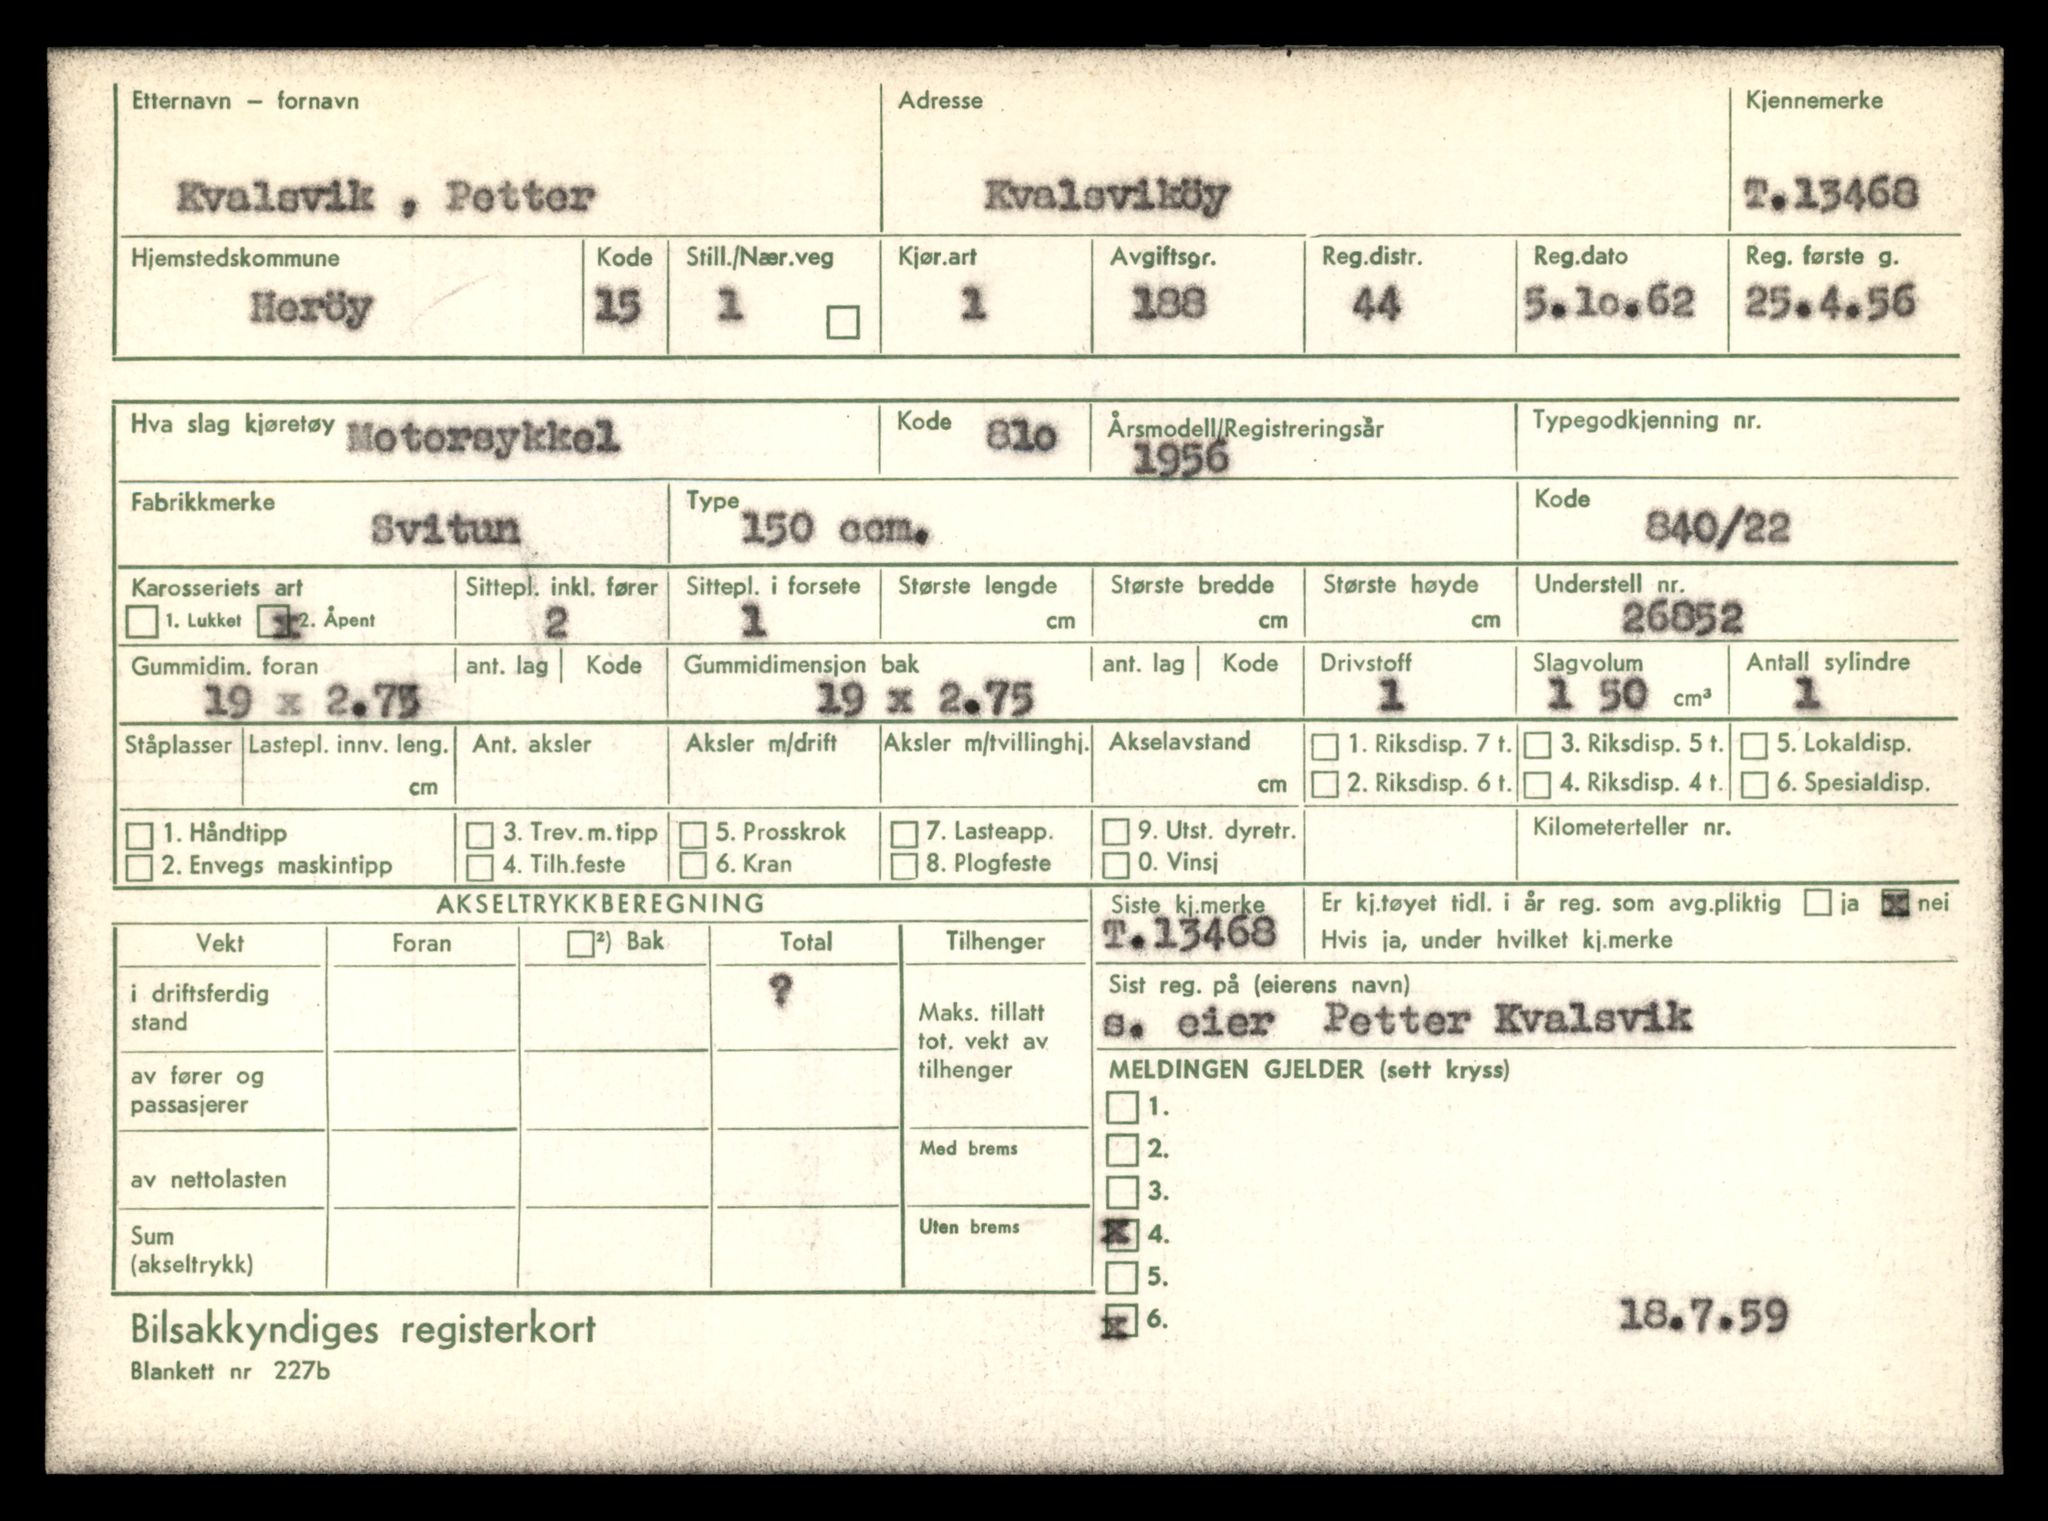 Etternavn – fornavn Adresse Kjennemerke
Kvalsvik , Petter Kvalsviköy T.13468
Hjemstedskommune Kode Still./Nær.veg Kjør.art Avgiftsgr. Reg.distr. Reg.dato Reg. første g.
Heröy 15 1 1 188 44 5.1o.62 25.4.56
Hva slag kjøretøy Motorsykkel Kode 81o Årsmodell/Registreringsår Typegodkjenning nr.
1956
Fabrikkmerke Type Kode
Svitun 150 ccm. 840/22
Karosseriets art Sittepl. inkl. fører Sittepl. i forsete Største lengde Største bredde Største høyde Understell nr.
1. Lukket x 2. Åpent 2 1 cm cm cm 26852
Gummidim. foran ant. lag Kode Gummidimensjon bak ant. lag Kode Drivstoff Slagvolum Antall sylindre
19 x 2.75 19 x 2.75 1 1 50 cm³ 1
Ståplasser Lastepl. innv. leng. Ant. aksler Aksler m/drift Aksler m/tvillinghj. Akselavstand 1. Riksdisp. 7 t. 3. Riksdisp. 5 t. 5. Lokaldisp.
cm cm 2. Riksdisp. 6 t. 4. Riksdisp. 4 t. 6. Spesialdisp.
1. Håndtipp 3. Trev. m. tipp 5. Prosskrok 7. Lasteapp. 9. Utst. dyretr. Kilometerteller nr.
2. Envegs maskintipp 4. Tilh.feste 6. Kran 8. Plogfeste 0. Vinsj
AKSELTRYKKBEREGNING Siste kj.merke Er kj.tøyet tidl. i år reg. som avg.pliktig ja x nei
T.13468 Hvis ja, under hvilket kj.merke
Vekt Foran ²) Bak Total Tilhenger
i driftsferdig stand ?
Maks. tillatt tot. vekt av tilhenger
Sist reg. på (eierens navn)
s. eier Petter Kvalsvik
av fører og passasjerer
MELDINGEN GJELDER (sett kryss)
1.
av nettolasten Med brems 2.
3.
Sum (akseltrykk) Uten brems x 4.
5.
x 6. 18.7.59
Bilsakkyndiges registerkort
Blankett nr 227b